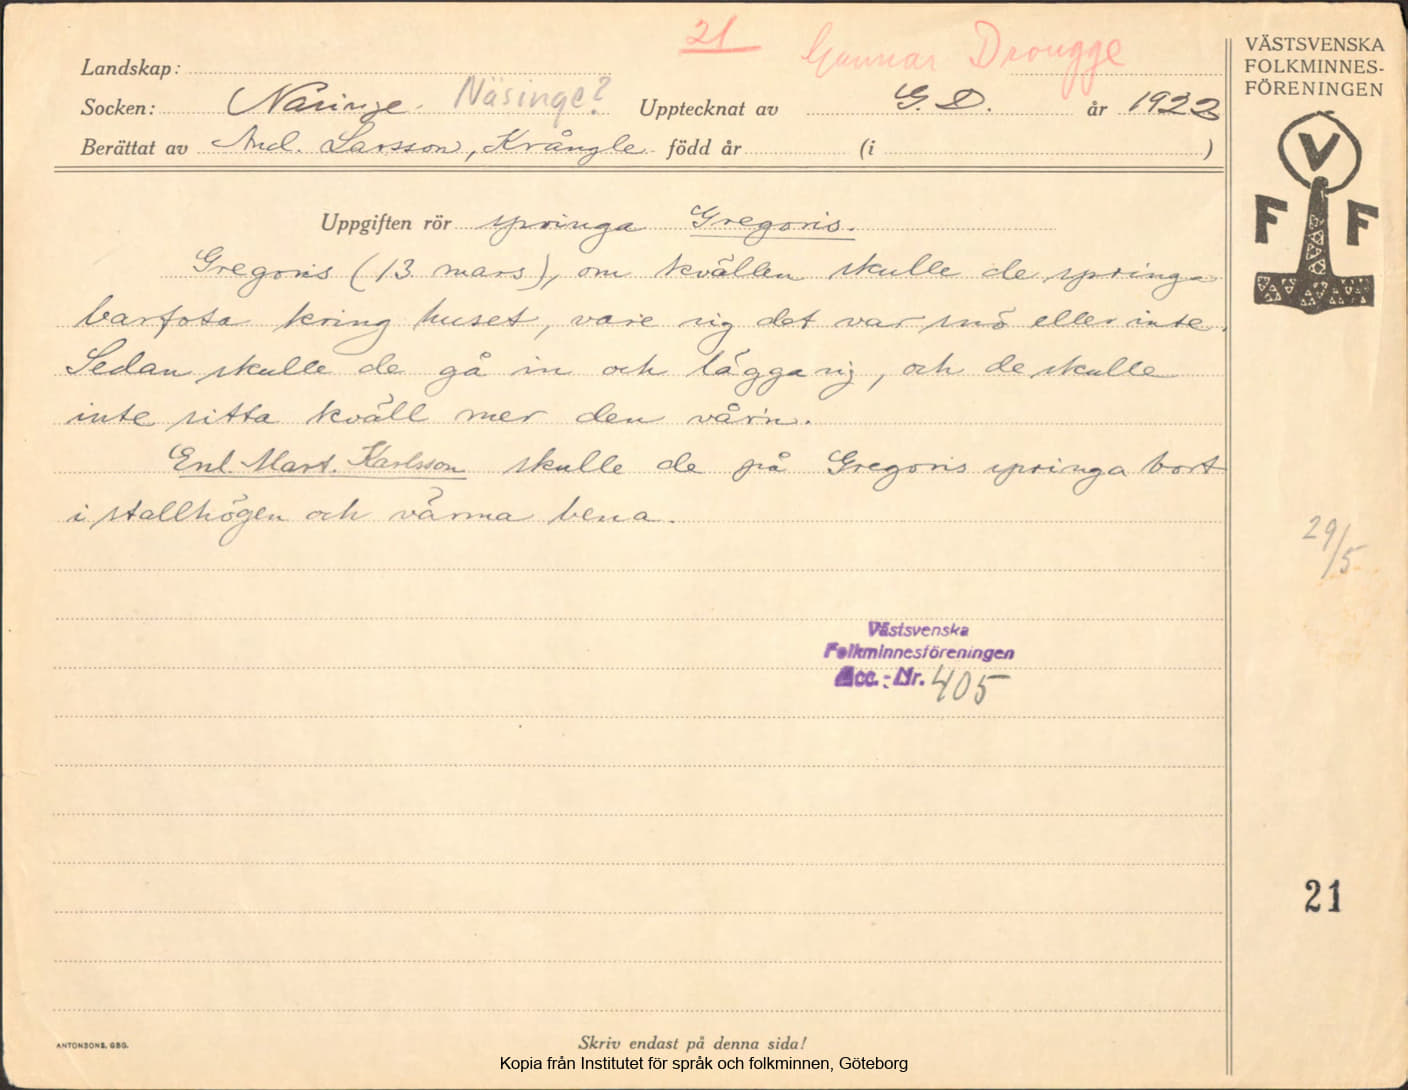 21 Gunnar Drougge
Landskap:
Socken: Näsinge. Näsinge? Upptecknat av G. D. år 1922
Berättat av And. Larsson, Krångle född år (i )
Uppgiften rör springa Gregoris.
Gregoris (13 mars), om kvällen skulle de springa
barfota kring huset, vare sig det var snö eller inte.
Sedan skulle de gå in och lägga sig, och de skulle
inte sitta kväll mer den vår'n.
Enl. Mart. Karlsson skulle de på Gregoris springa bort
i stallhögen och värma bena.
Västsvenska
Folkminnesföreningen
Acc.-Nr. 405
ANTONSONS, GBG.
Skriv endast på denna sida!
Kopia från Institutet för språk och folkminnen, Göteborg
VÄSTSVENSKA
FOLKMINNES-
FÖRENINGEN
V
F F
29/5
21